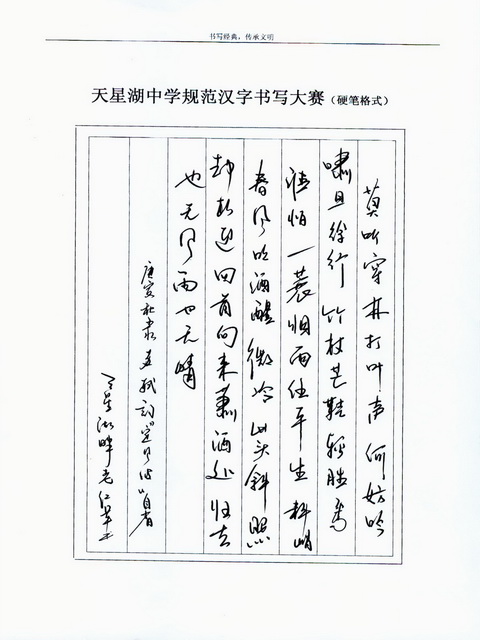 书写经典，传承文明
天星湖中学规范汉字书写大赛（硬笔格式）
莫听穿林打叶声何妨吟
啸且徐行竹杖芒鞋轻胜马
谁怕一蓑烟雨任平生料峭
春风吹酒醒微冷山头斜照
却相迎回首向来萧洒处归去
也无风雨也无晴
庚寅秋录苏轼词“定风波”自省
天星湖畔老仁